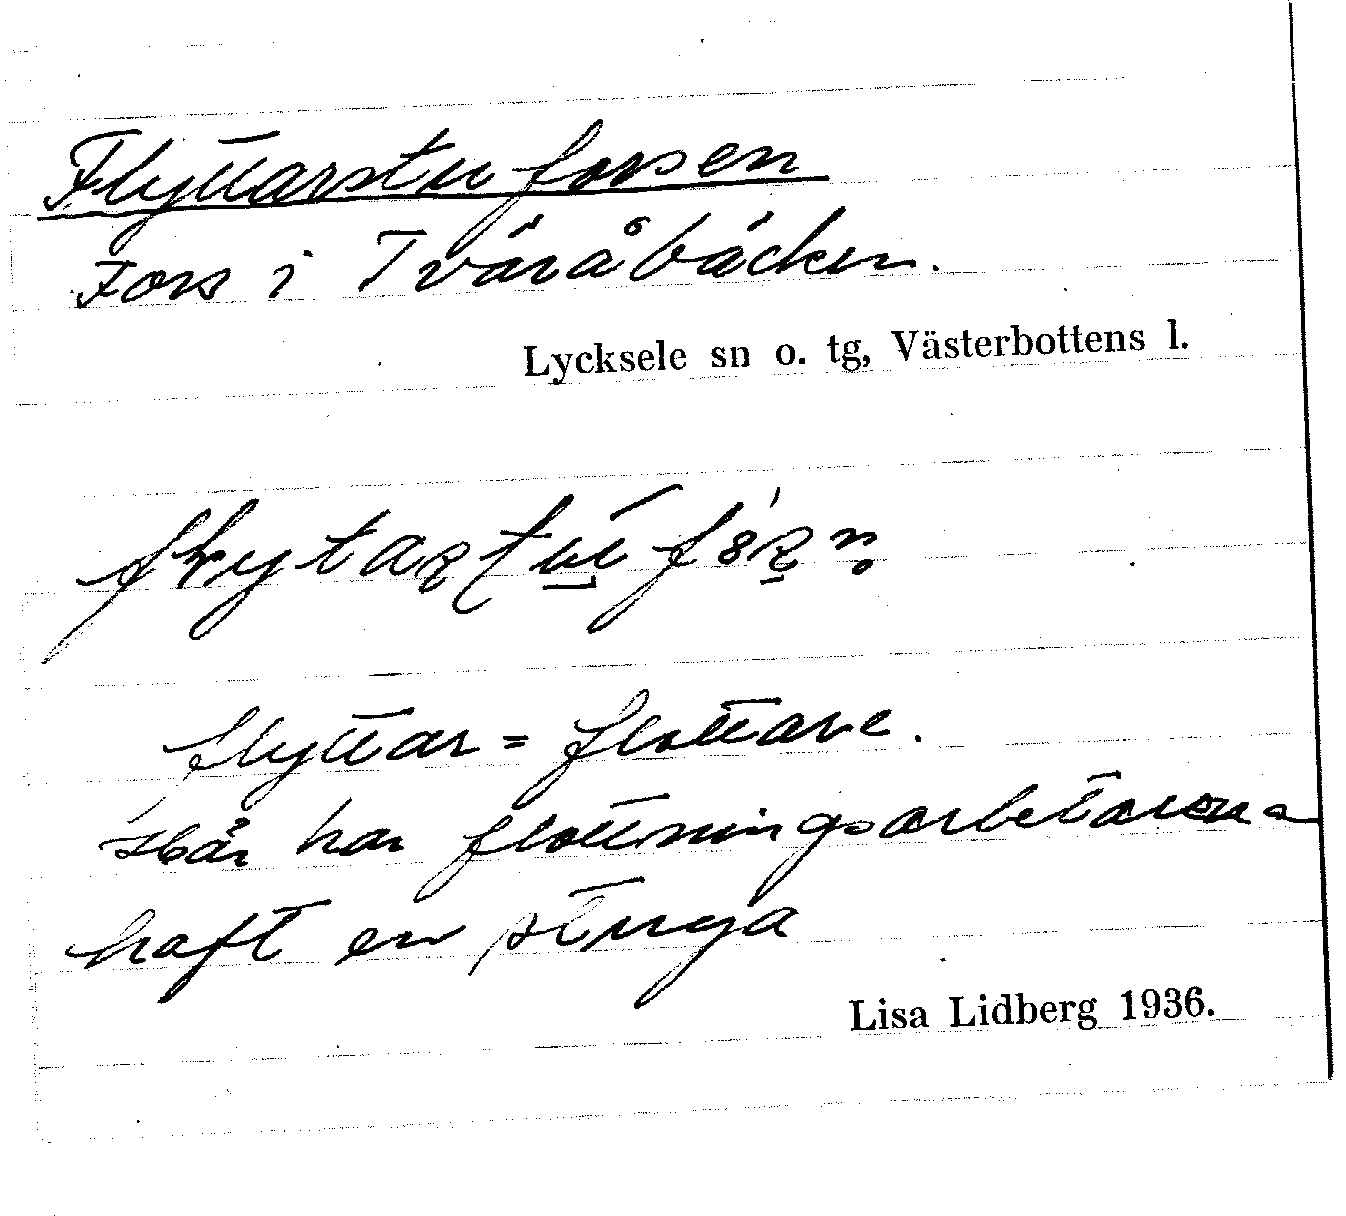 Flyttarstuforsen
Fors i Tväråbäcken.
Lycksele sn o. tg, Västerbottens l.
flyttar = flottare.
Här har flottningsarbetarna
haft en stuga
Lisa Lidberg 1936.